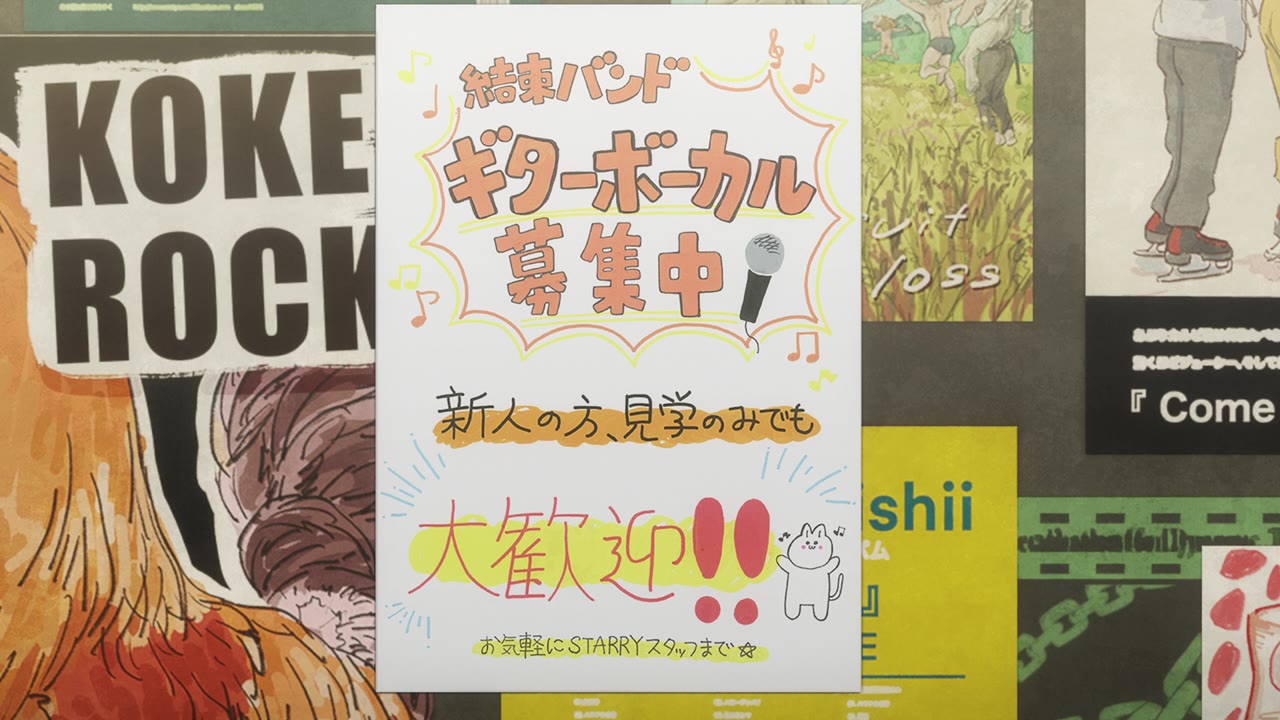 KOKE
ROCK
結束バンド
ギターボーカル
募集中
新人の方、見学のみでも
大歓迎!!
お気軽にSTARRYスタッフまで☆
uit
loss
『 Come
ishii